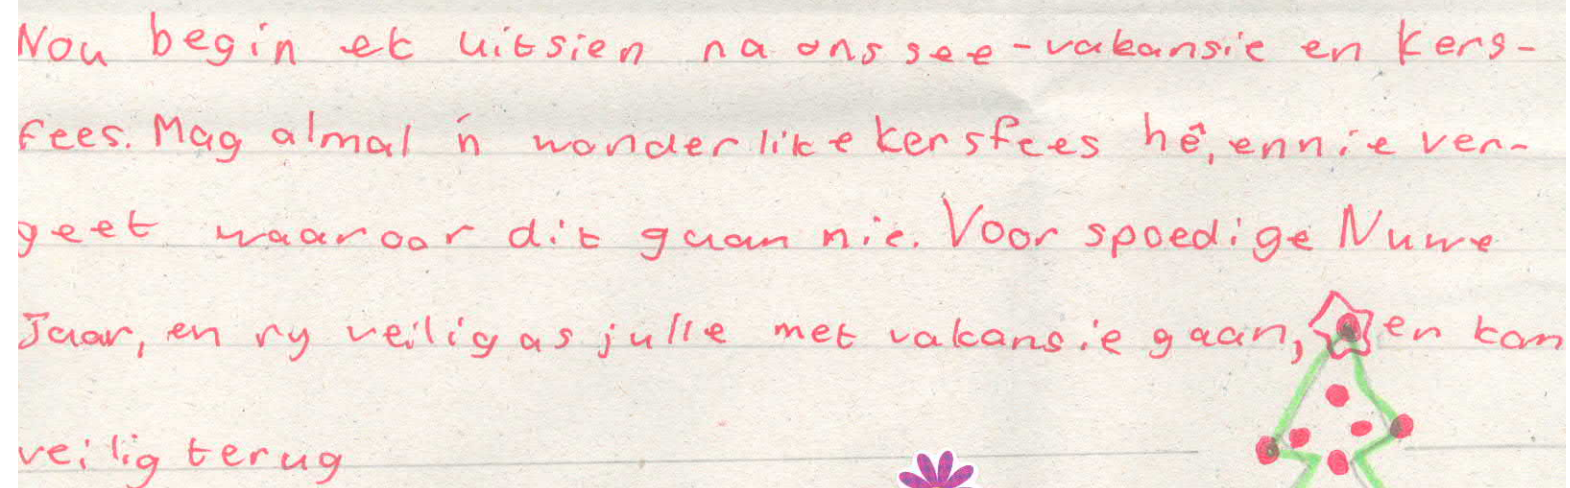 Nou begin ek uitsien na ons see-vakansie en Kers-
fees. Mag almal 'n wonderlike kersfees hê, en nie ver-
geet waaroor dit gaan nie. Voor spoedige Nuwe
Jaar, en ry veilig as julle met vakansie gaan, en kom
veilig terug